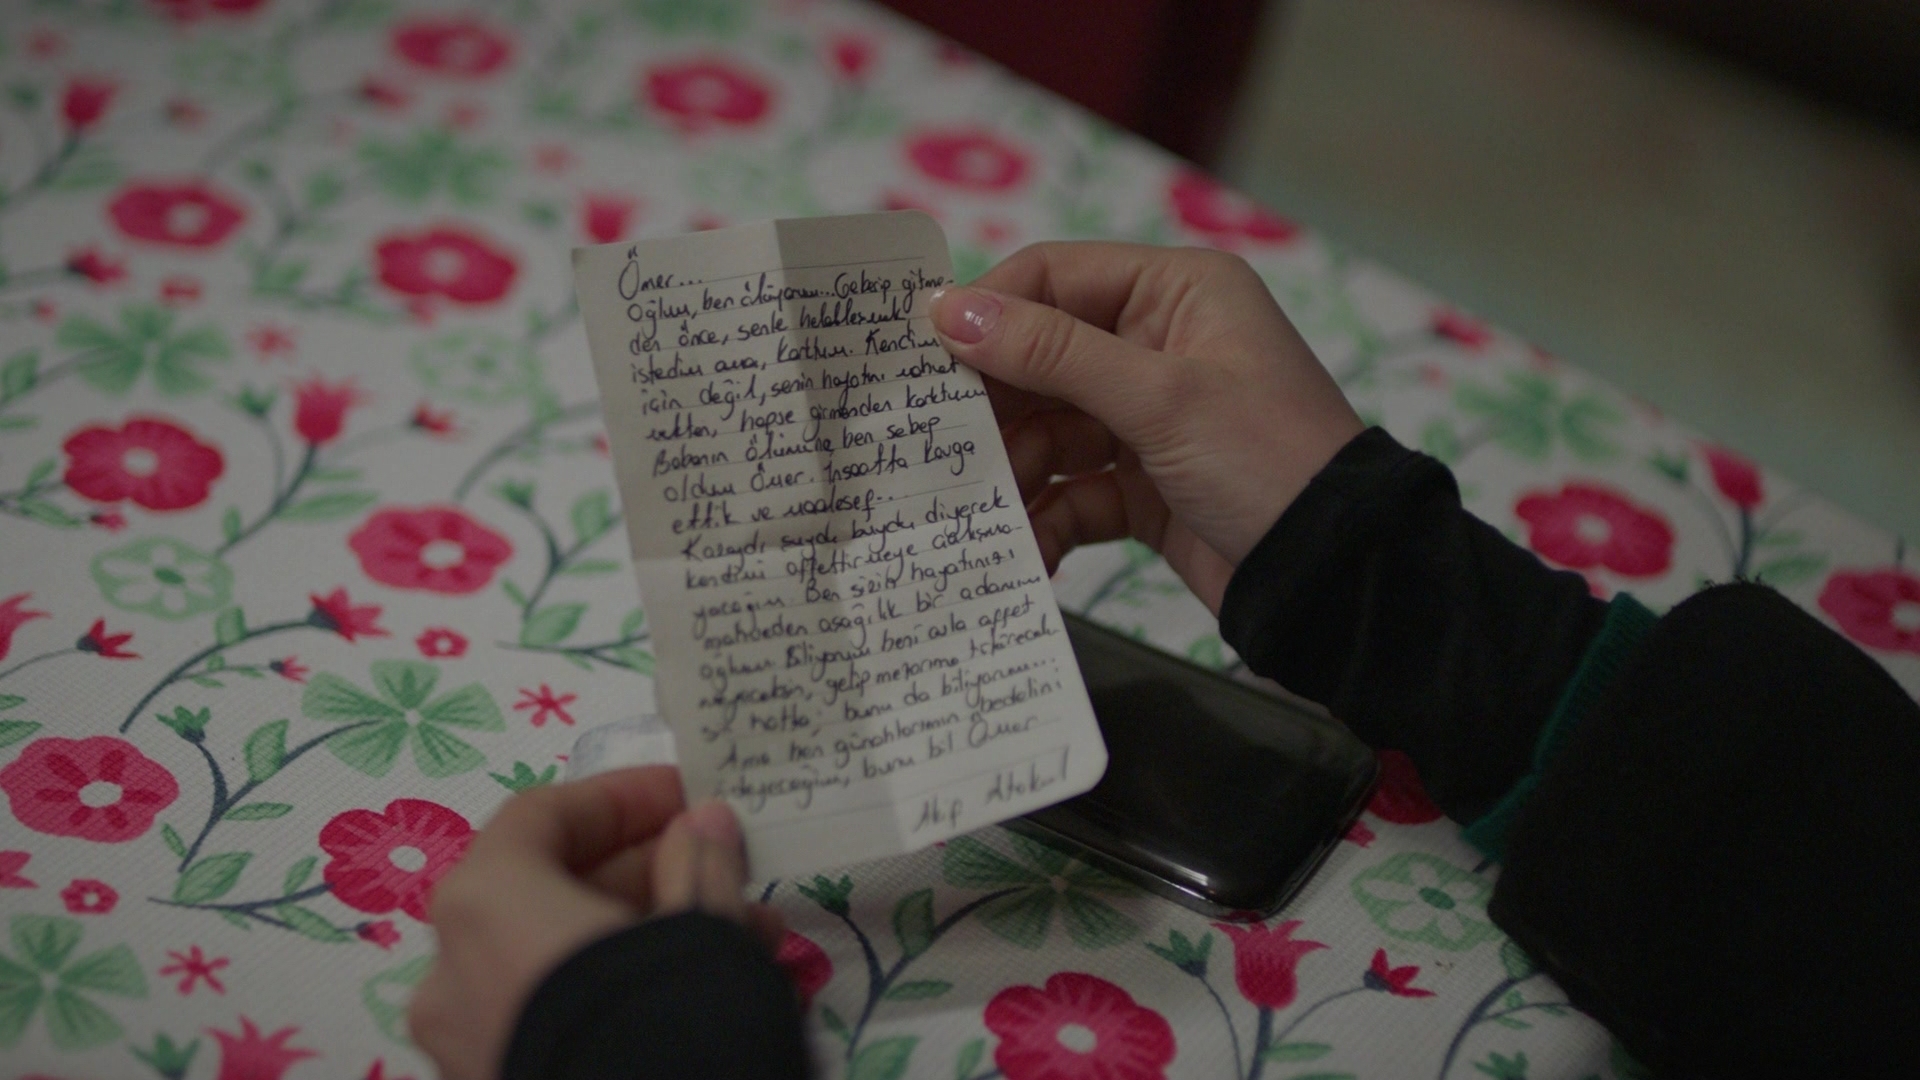 Ömer...
Oğlum, ben ölüyorum... Geberip gitme-
den önce, senle helalleşmek
istedim ama, korktum. Kendim
için değil, senin hayatını mahvet
mekten, hapse girmenden korktum
Babanın ölümüne ben sebep
oldum Ömer. İnşaatta kavga
ettik ve maalesef...
Kazaydı şuydu buydu diyerek
kendimi affettirmeye çalışma-
yacağım. Ben sizin hayatınızı
mahveden aşağılık bir adamım
oğlum. Biliyorum beni asla affet
meyeceksin, gelip mezarıma tükürecek
sin hatta; bunu da biliyorum...
Ama ben günahlarımın bedelini
ödeyeceğim, bunu bil Ömer
Akif Atakul